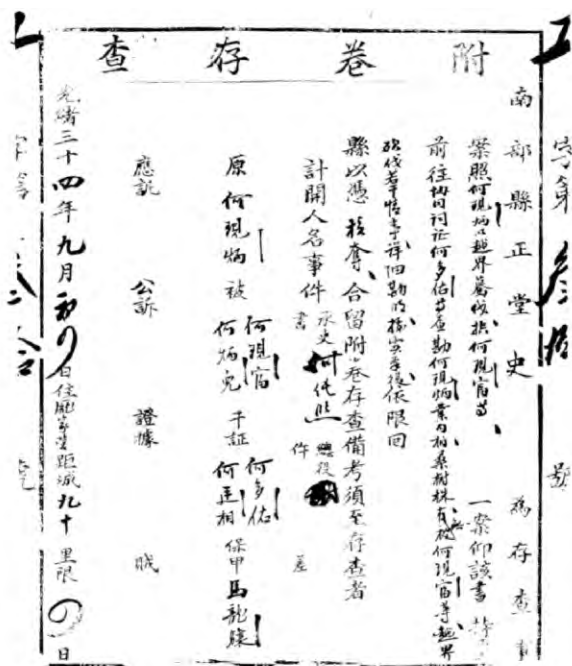 附卷存查
南部縣正堂史 為存查事
案照何現炳以越界蠹伐控何現富等 一案仰該書
前往協同詞証何多佑等查勘何現炳業內柏桑樹株有被何現富等越界
砍伐若干情事詳細勘明據實稟後依限回
縣以憑核奪合留附卷存查備考須至存查者
計開人名事件 承史書 何 總役
原 何現炳 被 何現富 何炳 干証 何多佑 何廷相 保甲 馬龍
應訊 公訴 證據 賊
光緒三十四年九月初 日住 距城九十里限 日
字第 號